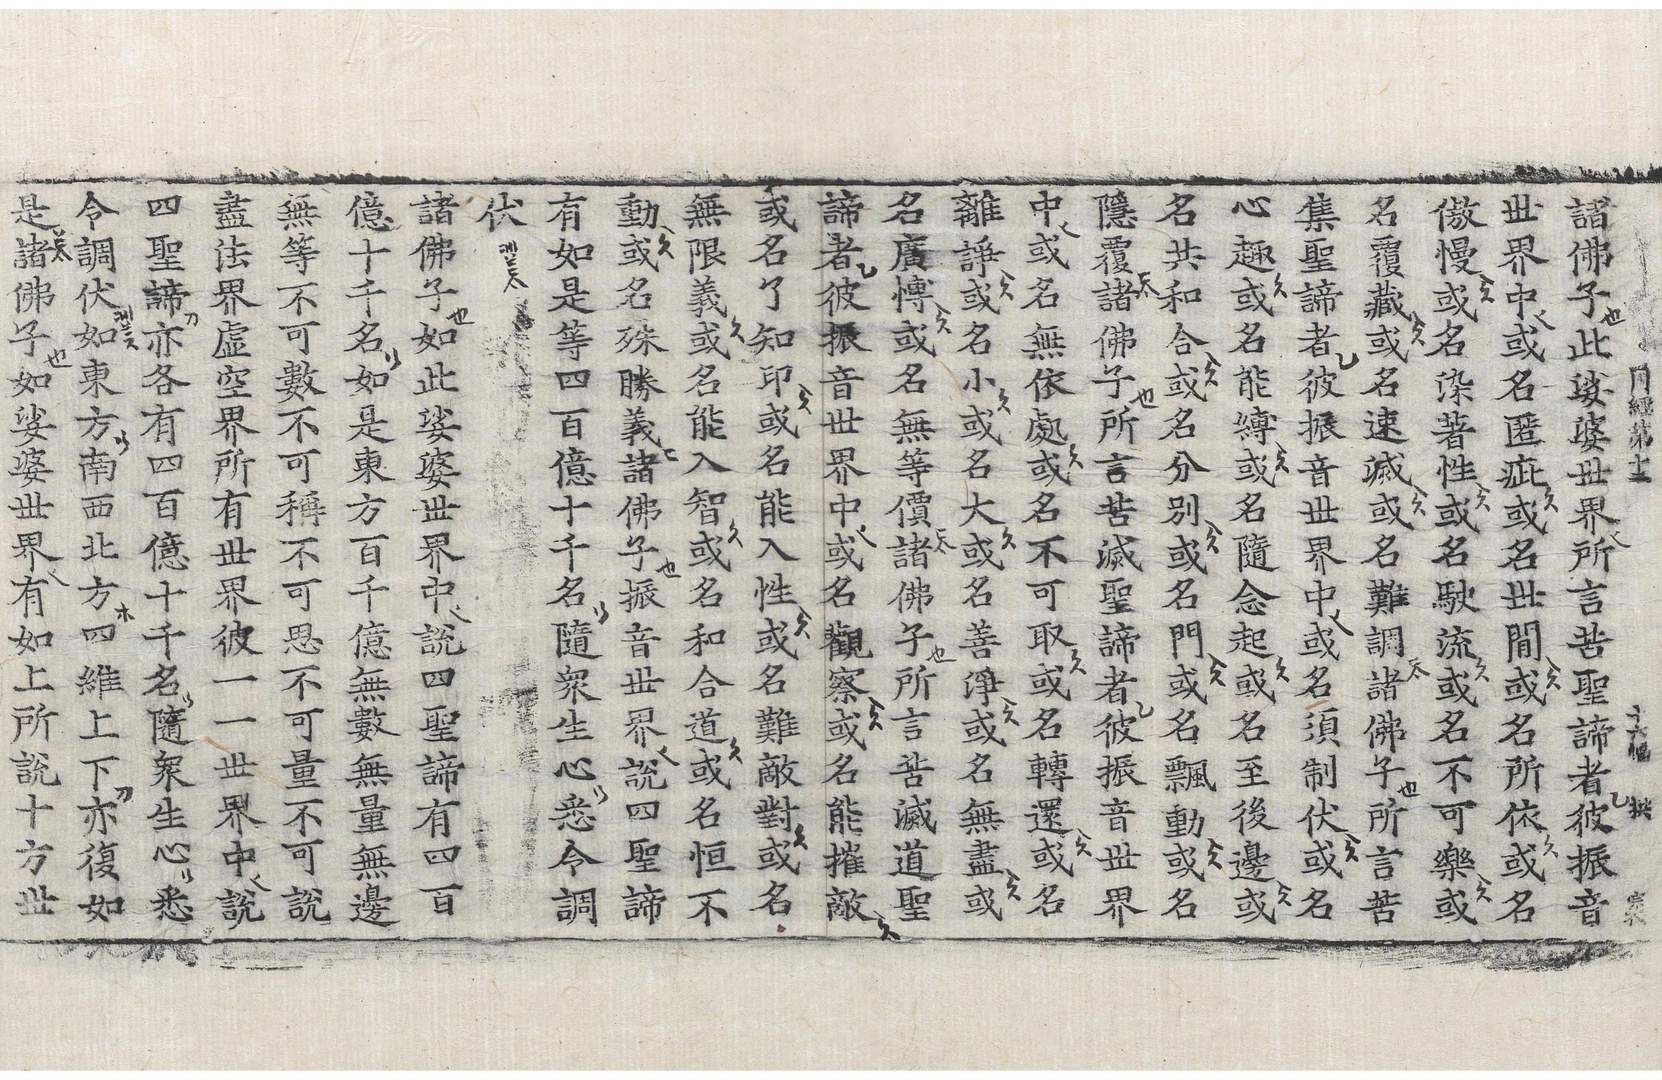 諸佛子此娑婆世界所言苦聖諦者彼振音
世界中或名匿疵或名世間或名所依或名
傲慢或名染著性或名駛流或名不可樂或
名覆藏或名速滅或名難調諸佛子所言苦
集聖諦者彼振音世界中或名須制伏或名
心趣或名能縛或名隨念起或名至後邊或
名共和合或名分別或名門或名飄動或名
隱覆諸佛子所言苦滅聖諦者彼振音世界
中或名無依處或名不可取或名轉還或名
離諍或名小或名大或名善淨或名無盡或
名廣愽或名無等價諸佛子所言苦滅道聖
諦者彼振音世界中或名觀察或名能摧敵
或名了知印或名能入性或名難敵對或名
無限義或名能入智或名和合道或名恒不
動或名殊勝義諸佛子振音世界說四聖諦
有如是等四百億十千名隨衆生心悉令調
伏
諸佛子如此娑婆世界中說四聖諦有四百
億十千名如是東方百千億無數無量無邊
無等不可數不可稱不可思不可量不可說
盡法界虛空界所有世界彼一一世界中說
四聖諦亦各有四百億十千名隨衆生心悉
令調伏如東方南西北方四維上下亦復如
是諸佛子如娑婆世界有如上所說十方世